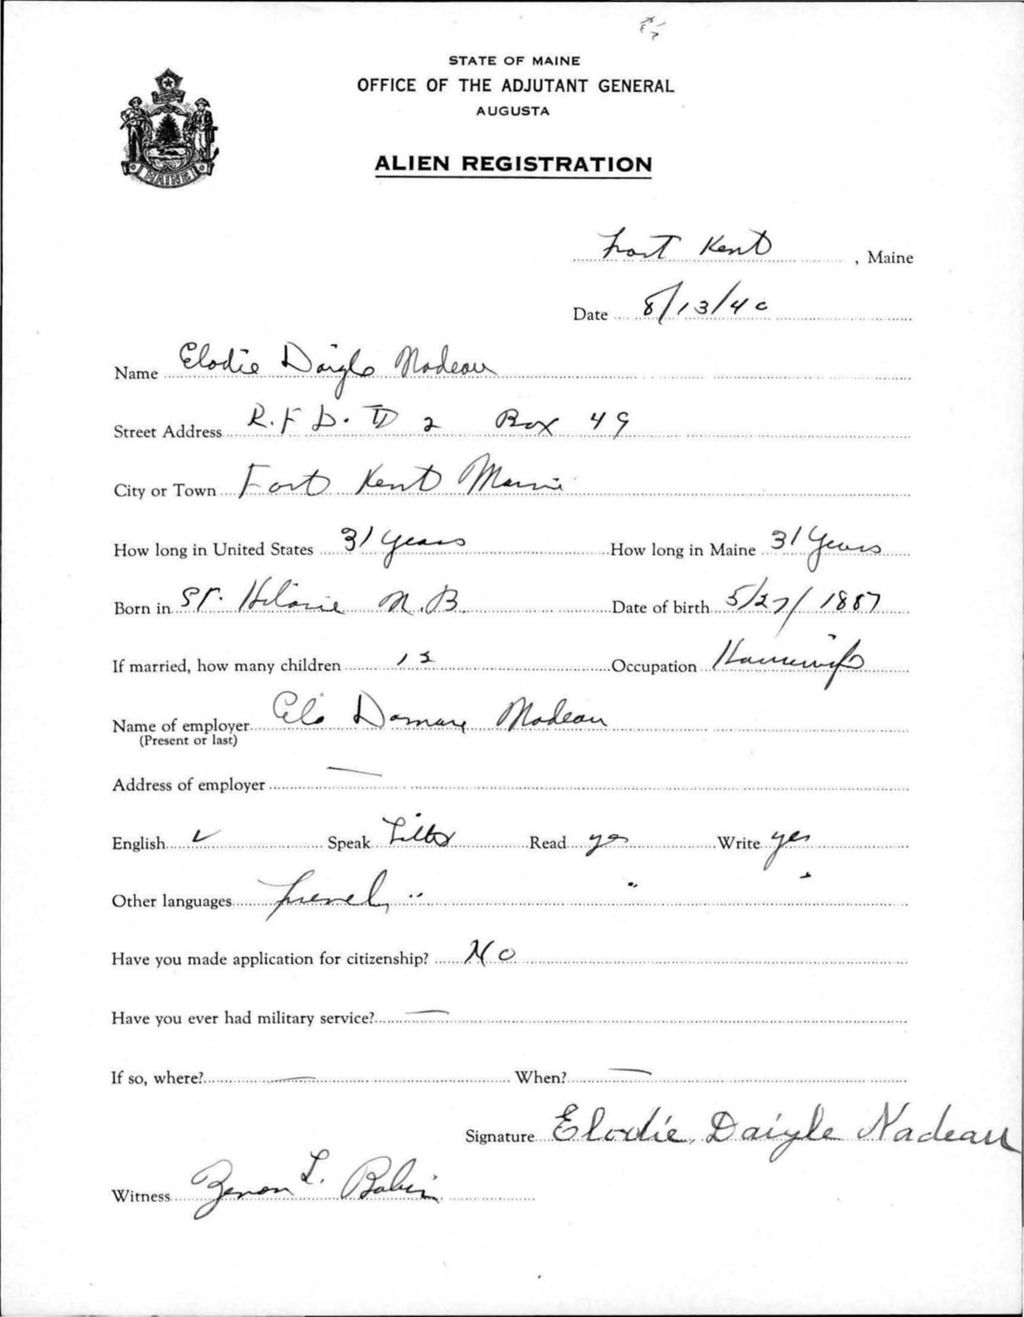 STATE OF MAINE
OFFICE OF THE ADJUTANT GENERAL
AUGUSTA
MAINE
ALIEN REGISTRATION
Fort Kent, Maine
Date 8/13/40
Name Elodie Daigle Nadeau
Street Address R.F.D. # 2 Box 49
City or Town Fort Kent Maine
How long in United States 31 Years How long in Maine 31 Years
Born in St. Hilaire N.B. Date of birth 5/27/1887
If married, how many children 12 Occupation Housewife
Name of employer Nadeau
(Present or last)
Address of employer —
English ✓ Speak Little Read yes Write yes
Other languages French " " "
Have you made application for citizenship? No
Have you ever had military service? —
If so, where? — When? —
Signature Elodie Daigle Nadeau
Witness L.